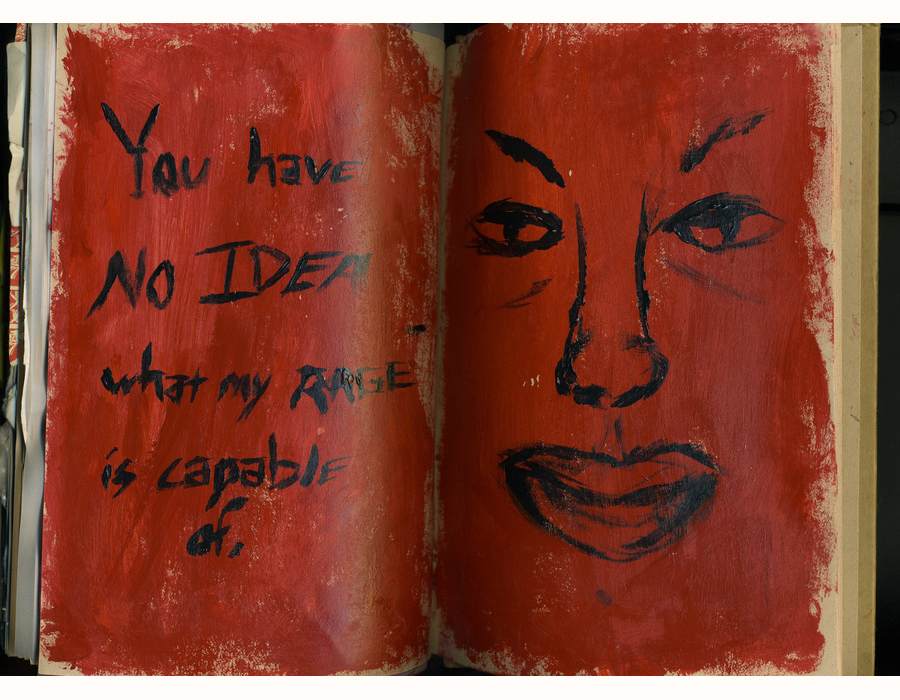 You have
NO IDEA
what my RAGE
is capable
of.